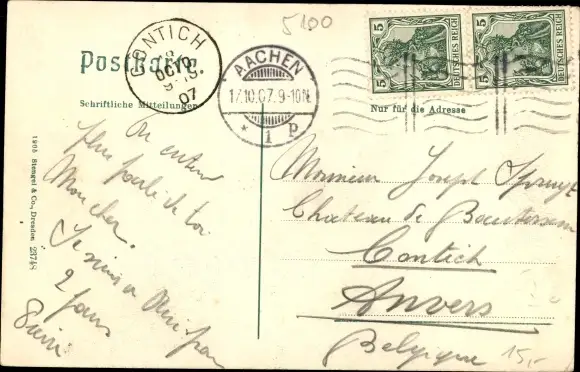 5100
Postkarte
CONTICH
OCTO
9-S.
07
AACHEN
17.10.07.9-10N.
* 1 p
5 DEUTSCHES REICH 5
5 DEUTSCHES REICH
Schriftliche Mitteilungen
Nur für die Adresse
1905 Stengel & Co., Dresden 23748
plus parlé de toi
Mon cher.
Je suis
2 jours
Monsieur Joseph
Chateau de
Contich
Anvers
Belgique
15,-